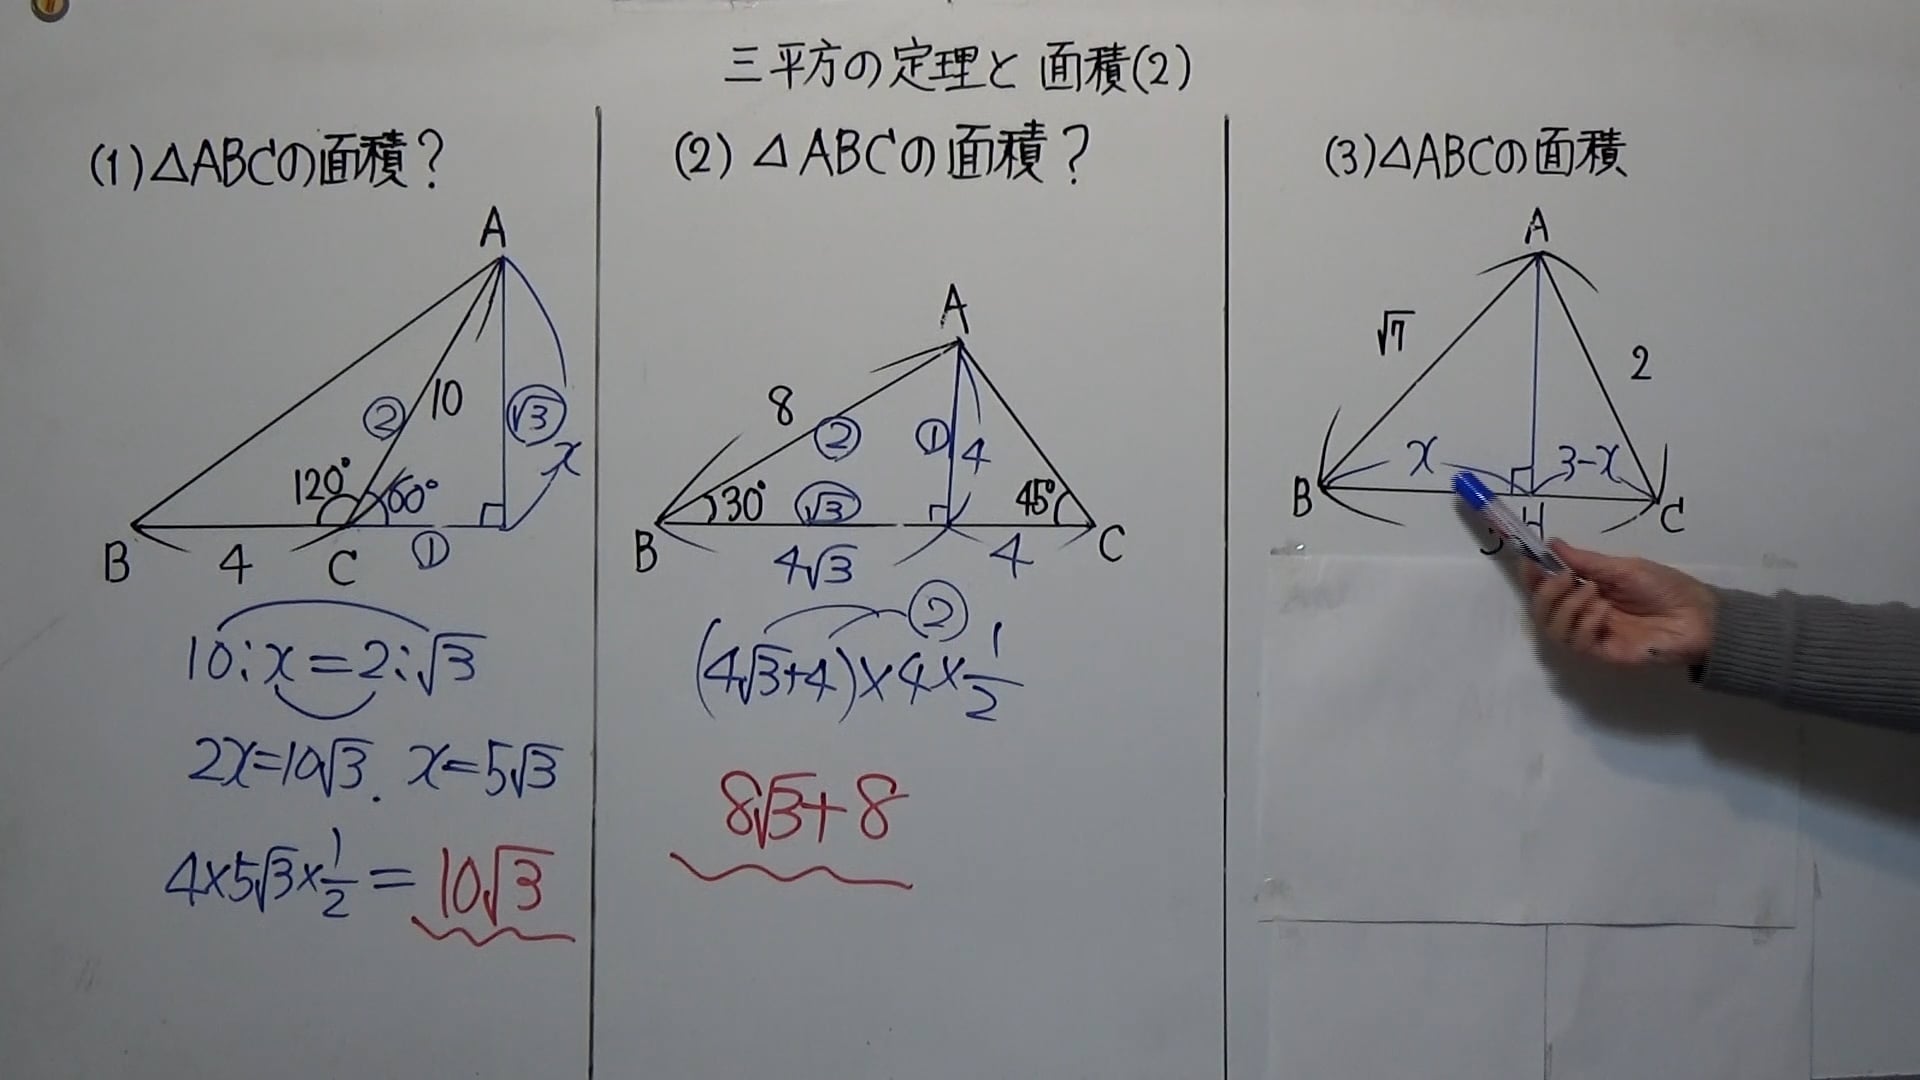 三平方の定理と 面積(2)
(1)△ABCの面積?
A
10
②
√3
x
120°
60°
B
4
C
①
10:x=2:√3
2x=10√3. x=5√3
4×5√3×1/2=10√3
(2) △ABCの面積?
A
8
②
①
4
30°
√3
45°
B
4√3
4
C
②
(4√3+4)×4×1/2
8√3+8
(3)△ABCの面積
A
√7
2
x
3-x
B
H
C